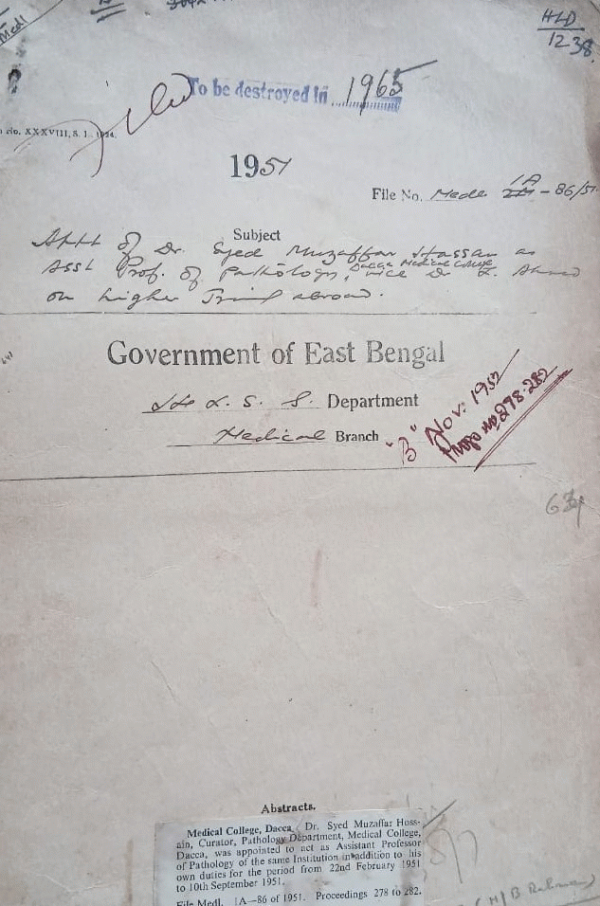 HLD
1238
To be destroyed in 1965
XXXVIII, S. 1.
1951
File No. Medl 1A - 86/51
Subject
Apptt of Dr. Syed Muzaffar Hassan as
Asst Prof. of Pathology, Dacca Medical College vice Dr Ahmed
on higher abroad.
Government of East Bengal
Department
Medical Branch
"B" Nov. 1952
Progs no. 278-282
Abstracts.
Medical College, Dacca. Dr. Syed Muzaffar Hoss-
ain, Curator, Pathology Department, Medical College,
Dacca, was appointed to act as Assistant Professor
of Pathology of the same Institution in addition to his
own duties for the period from 22nd February 1951
to 10th September 1951.
File Medl. 1A—86 of 1951. Proceedings 278 to 282.